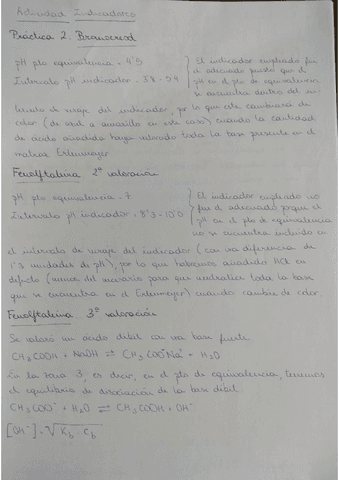 Actividad Indicadores
Práctica 2. Bromocresol
pH pto equivalencia = 4'5
Intervalo pH indicador = 3'8 - 5'4
El indicador empleado fue
el adecuado puesto que el
pH en el pto de equivalencia
se encuentra dentro del in-
tervalo de viraje del indicador, por lo que este cambiará de
color (de azul a amarillo en este caso) cuando la cantidad
de ácido añadido haya valorado toda la base presente en el
matraz Erlenmeyer
Fenolftaleína 2ª valoración
pH pto equivalencia = 7
Intervalo pH indicador = 8'3 - 10'0
El indicador empleado no
fue el adecuado porque el
pH en el pto de equivalencia
no se encuentra incluido en
el intervalo de viraje del indicador (con una diferencia de
1'3 unidades de pH), por lo que habremos añadido HCl en
defecto (menos del necesario para que neutralice toda la base
que se encuentra en el Erlenmeyer) cuando cambie de color.
Fenolftaleína. 3ª valoración
Se valora un ácido débil con una base fuerte
CH₃COOH + NaOH ⇌ CH₃COO⁻Na⁺ + H₂O
En la zona 3, es decir, en el pto de equivalencia, tenemos
el equilibrio de disociación de la base débil
CH₃COO⁻ + H₂O ⇌ CH₃COOH + OH⁻
[OH⁻] = √Kb · Cb